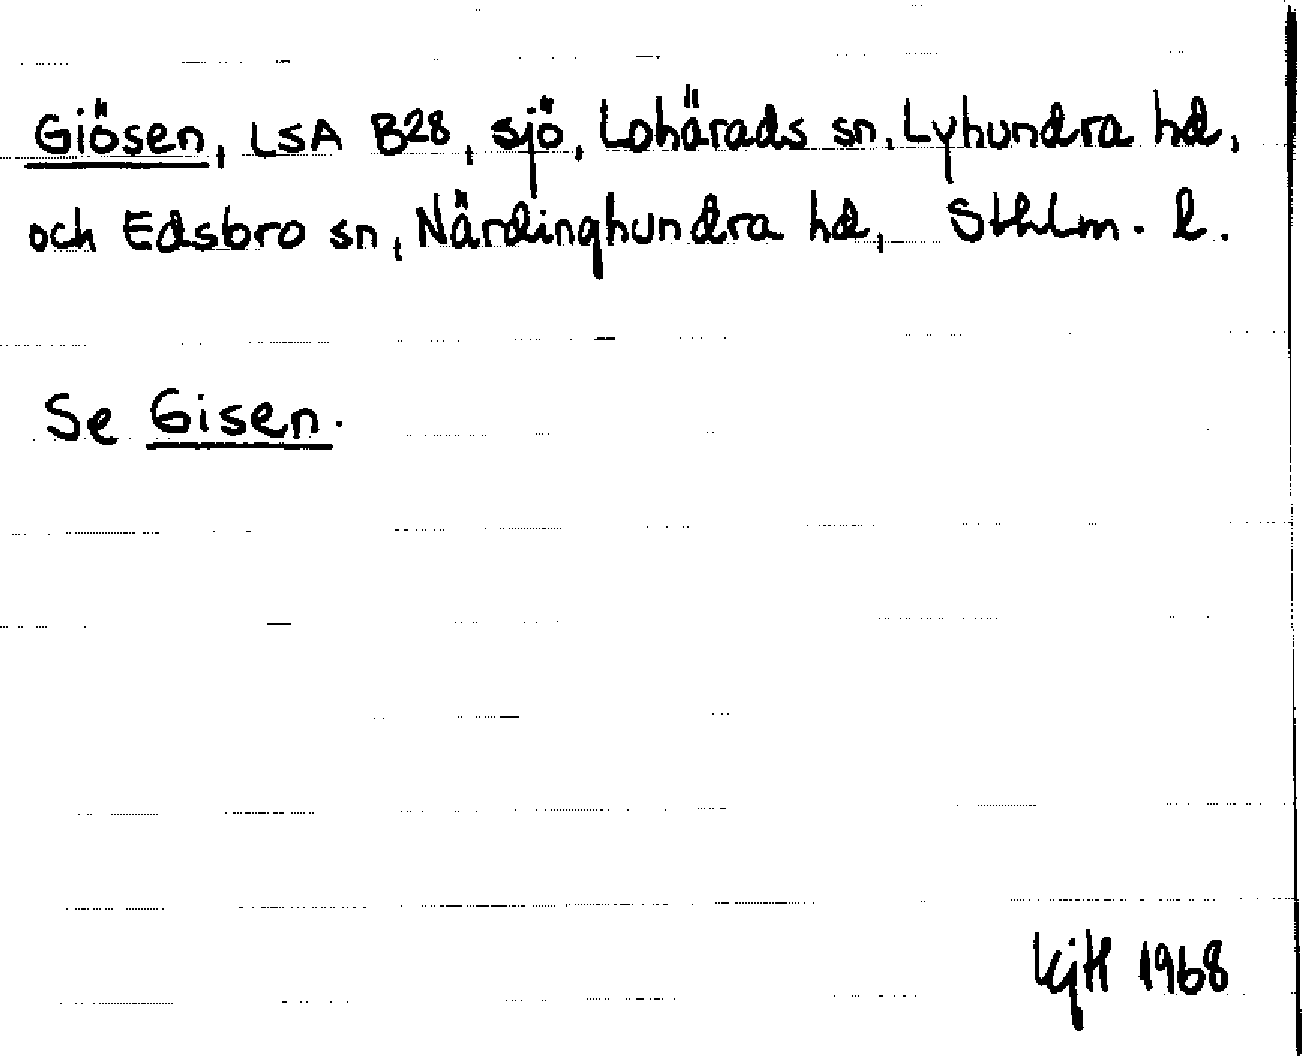 Giösen, LSA B28, sjö, Lohärads sn, Lyhundra hd,
och Edsbro sn, Närdinghundra hd, Sthlm. l.
Se Gisen.
KjH 1968